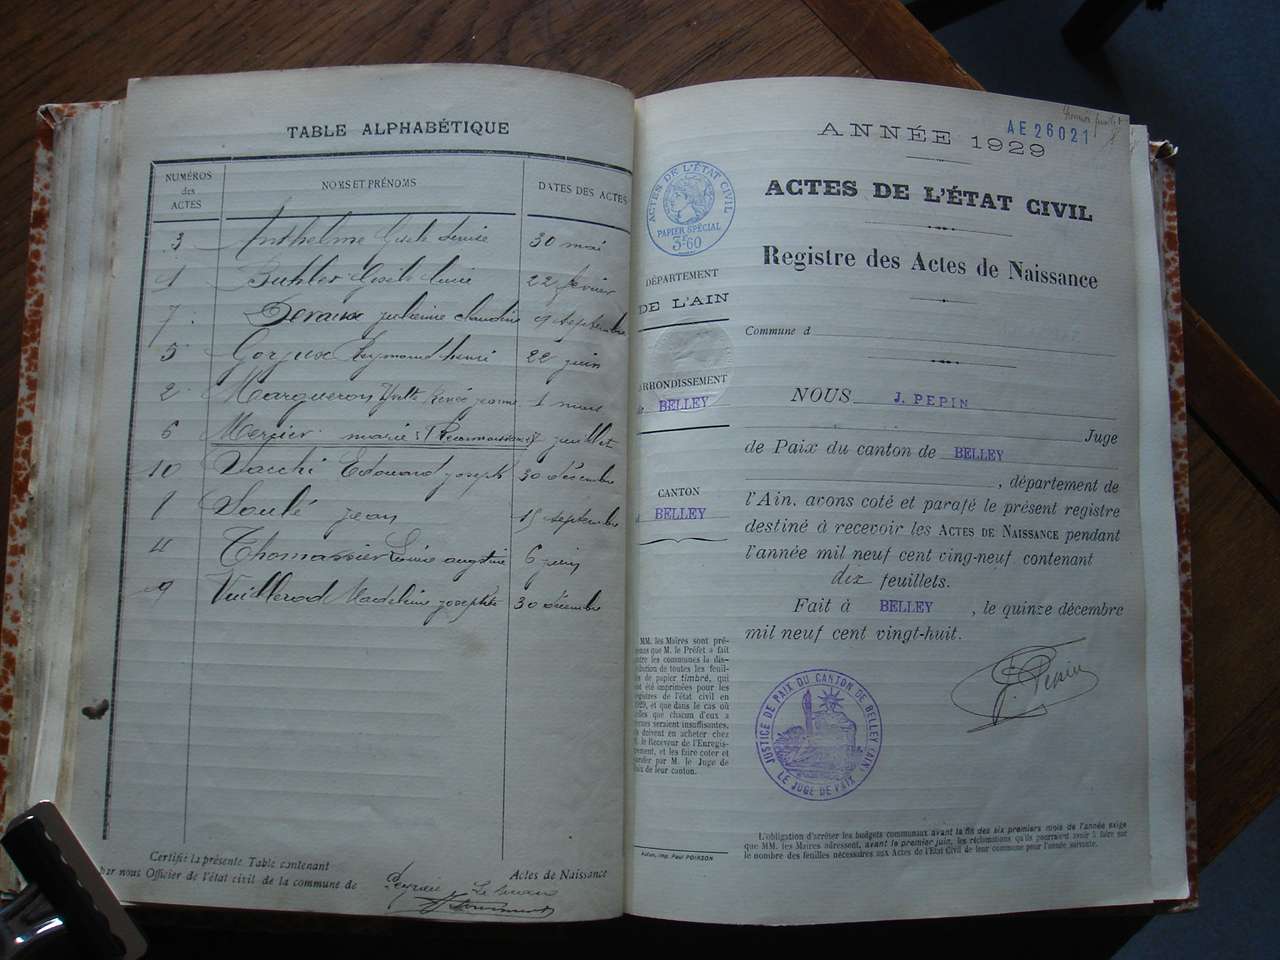 TABLE ALPHABÉTIQUE
NUMÉROS des ACTES NOMS ET PRÉNOMS DATES DES ACTES
3 Anthelme Gisèle Denise 30 mai
1 Buhler Gisèle Lucie 22 février
7 Devaux julienne claudine 9 septembre
5 Gorjux Raymond henri 22 juin
2 Margueron Yvette Renée jeanne 1 mars
6 Mercier marie juillet
10 Vacchi Edouard joseph 30 décembre
jean 15 septembre
4 Thomassier Louise augstine 6 juin
9 Vuillerod Madeleine josephte 30 décembre
Certifié la présente Table contenant Actes de Naissance
par nous Officier de l'état civil de la commune de Peyrieu Le
AE 26021
ANNÉE 1929
ACTES DE L'ÉTAT CIVIL
PAPIER SPÉCIAL
3F60
ACTES DE L'ÉTAT CIVIL
Registre des Actes de Naissance
DÉPARTEMENT
DE L'AIN
Commune d
ARRONDISSEMENT
BELLEY
CANTON
BELLEY
NOUS J. PEPIN
Juge
de Paix du canton de BELLEY
, département de
l'Ain, avons coté et parafé le présent registre
destiné à recevoir les ACTES DE NAISSANCE pendant
l'année mil neuf cent ving-neuf contenant
dix feuillets.
Fait à BELLEY , le quinze décembre
mil neuf cent vingt-huit.
J. Pepin
MM. les Maires sont pré-
venus que M. le Préfet a fait
entre les communes la dis-
tribution de toutes les feuil-
les de papier timbré, qui
ont été imprimées pour les
registres de l'état civil en
1929, et que dans le cas où
celles que chacun d'eux a
reçues seraient insuffisantes,
ils doivent en acheter chez
M. le Receveur de l'Enregis-
trement, et les faire coter et
parafer par M. le Juge de
Paix de leur canton.
JUSTICE DE PAIX DU CANTON DE BELLEY (AIN)
LE JUGE DE PAIX
L'obligation d'arrêter les budgets communaux avant la fin des six premiers mois de l'année exige
que MM. les Maires adressent, avant le premier juin, les réclamations qu'ils pourraient avoir à faire sur
le nombre des feuilles nécessaires aux Actes de l'Etat Civil de leur commune pour l'année suivante.
Autun, imp. Paul POIRSON